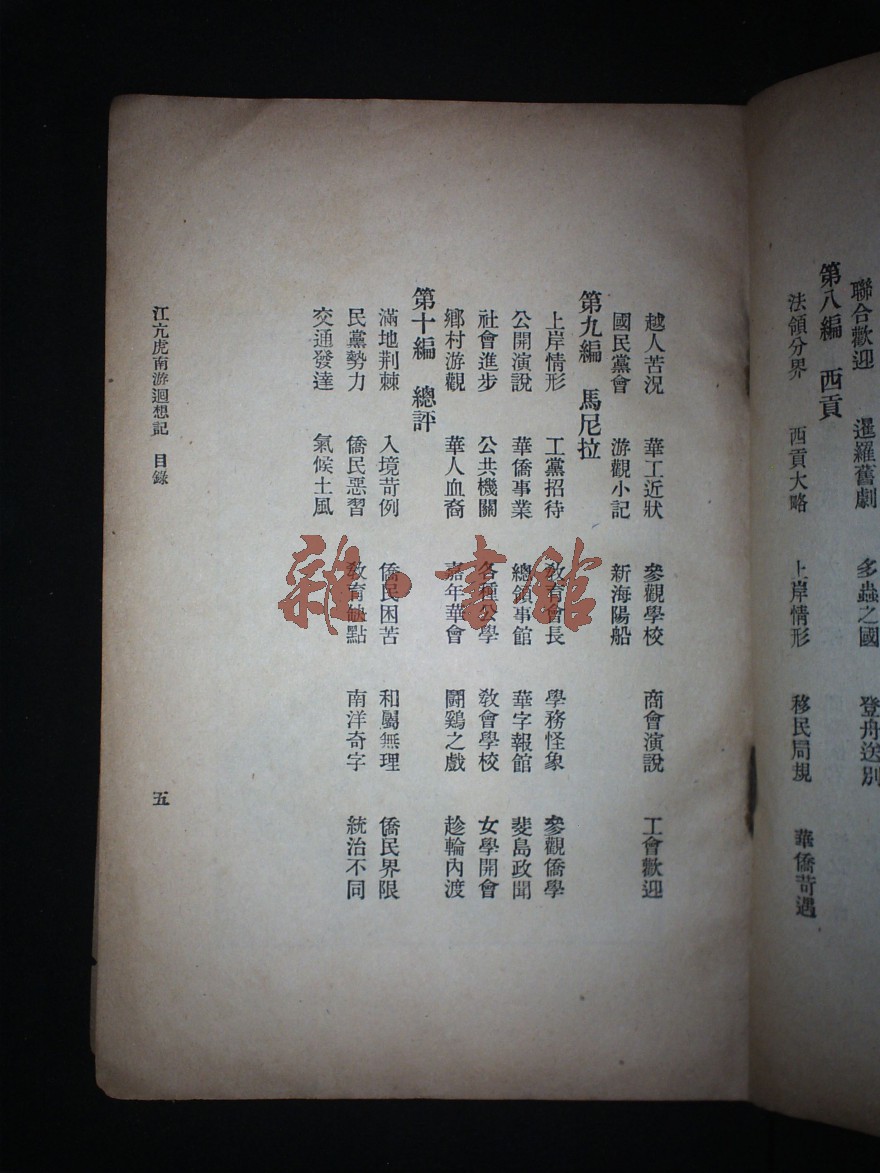 聯合歡迎 暹羅舊劇 多蟲之國 登舟送別
第八編 西貢
法領分界 西貢大略 上岸情形 移民局規 華僑苛遇
越人苦況 華工近狀 參觀學校 商會演說 工會歡迎
國民黨會 游觀小記 新海陽船
第九編 馬尼拉
上岸情形 工黨招待 教育會長 學務怪象 參觀僑學
公開演說 華僑事業 總領事館 華字報館 斐島政聞
社會進步 公共機關 各種公學 教會學校 女學開會
鄉村游觀 華人血裔 嘉年華會 鬪鷄之戲 趁輪內渡
第十編 總評
滿地荆棘 入境苛例 僑民困苦 和屬無理 僑民界限
民黨勢力 僑民惡習 教育缺點 南洋奇字 統治不同
交通發達 氣候土風
江亢虎南游迴想記 目錄 五
雜·書館